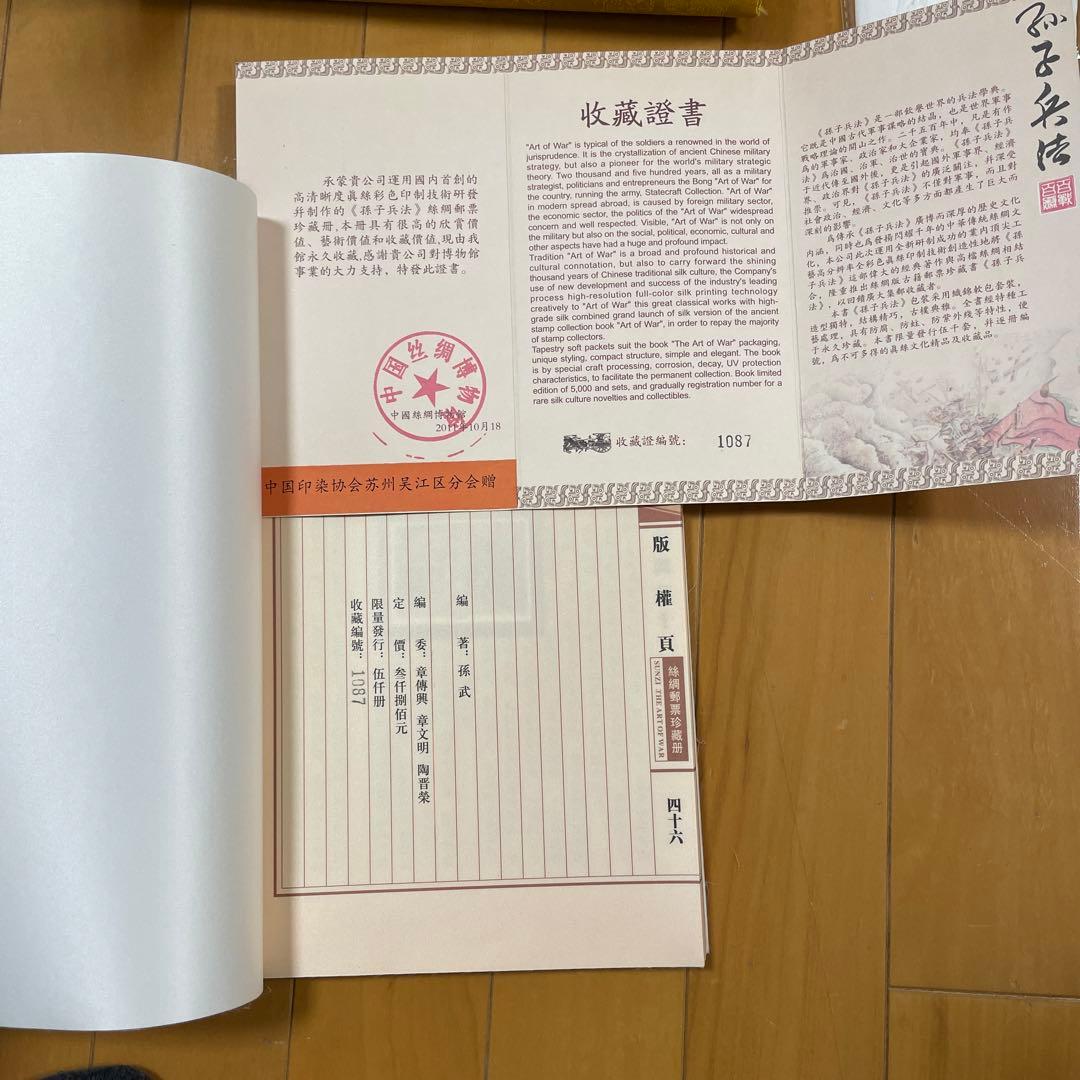 承蒙貴公司運用國内首創的
高清晰度眞絲彩色印制技術研發
幷制作的《孫子兵法》絲綢郵票
珍藏册,本册具有很高的欣賞價
值、藝術價值和收藏價值,現由我
館永久收藏,感謝貴公司對博物館
事業的大力支持，特發此證書。
中國丝綢博物館
中國絲綢博物館
2011年10月18
中国印染协会苏州吴江区分会赠
收藏證書
"Art of War" is typical of the soldiers a renowned in the world of
jurisprudence. It is the crystallization of ancient Chinese military
strategy, but also a pioneer for the world's military strategic
theory. Two thousand and five hundred years, all as a military
strategist, politicians and entrepreneurs the Bong "Art of War" for
the country, running the army, Statecraft Collection. "Art of War"
in modern spread abroad, is caused by foreign military sector,
the economic sector, the politics of the "Art of War" widespread
concern and well respected. Visible, "Art of War" is not only on
the military but also on the social, political, economic, cultural and
other aspects have had a huge and profound impact.
Tradition "Art of War" is a broad and profound historical and
cultural connotation, but also to carry forward the shining
thousand years of Chinese traditional silk culture, the Company's
use of new development and success of the industry's leading
process high-resolution full-color silk printing technology
creatively to "Art of War" this great classical works with high-
grade silk combined grand launch of silk version of the ancient
stamp collection book "Art of War", in order to repay the majority
of stamp collectors.
Tapestry soft packets suit the book "The Art of War" packaging,
unique styling, compact structure, simple and elegant. The book
is by special craft processing, corrosion, decay, UV protection
characteristics, to facilitate the permanent collection. Book limited
edition of 5,000 and sets, and gradually registration number for a
rare silk culture novelties and collectibles.
收藏證編號： 1087
孫子兵法
《孫子兵法》是一部飲譽世界的兵法學典。
它既是中國古代軍事謀略的結晶，也是世界軍事
戰略理論的開山之作。二千五百年中，凡是有作
爲的軍事家、政治家和大企業家，均奉《孫子兵
法》爲治國、治軍、治世的寶典。《孫子兵法》
于近代傳至國外後，更是引起國外軍事界、經濟
界、政治界對《孫子兵法》的廣泛關注，并深受
推崇。可見，《孫子兵法》不僅對軍事，而且對
社會政治、經濟、文化等多方面都產生了巨大而
深刻的影響。
爲傳承《孫子兵法》廣博而深厚的歷史文化
内涵，同時也爲發揚閃耀千年的中華傳統絲綢文
化，本公司此次運用全新研制成功的業内頂尖工
藝高分辨率全彩色眞絲印制技術創造性地將《孫
子兵法》這部偉大的經典著作與高檔絲綢相結
合，隆重推出絲綢版古籍郵票珍藏書《孫子兵
法》，以回饋廣大集郵收藏者。
本書《孫子兵法》包裝采用織錦軟包套裝，
造型獨特，結構精巧，古樸典雅。全書經特種工
藝處理，具有防腐、防蛀、防紫外綫等特性，便
于永久珍藏。本書限量發行伍千套，幷逐册編
號，爲不可多得的眞絲文化精品及收藏品。
版權頁
絲綢郵票珍藏册
SUNZI THE ART OF WAR
四十六
編著：孫武
編委：章傳興 章文明 陶晋榮
定價：叁仟捌佰元
限量發行：伍仟册
收藏編號：1087